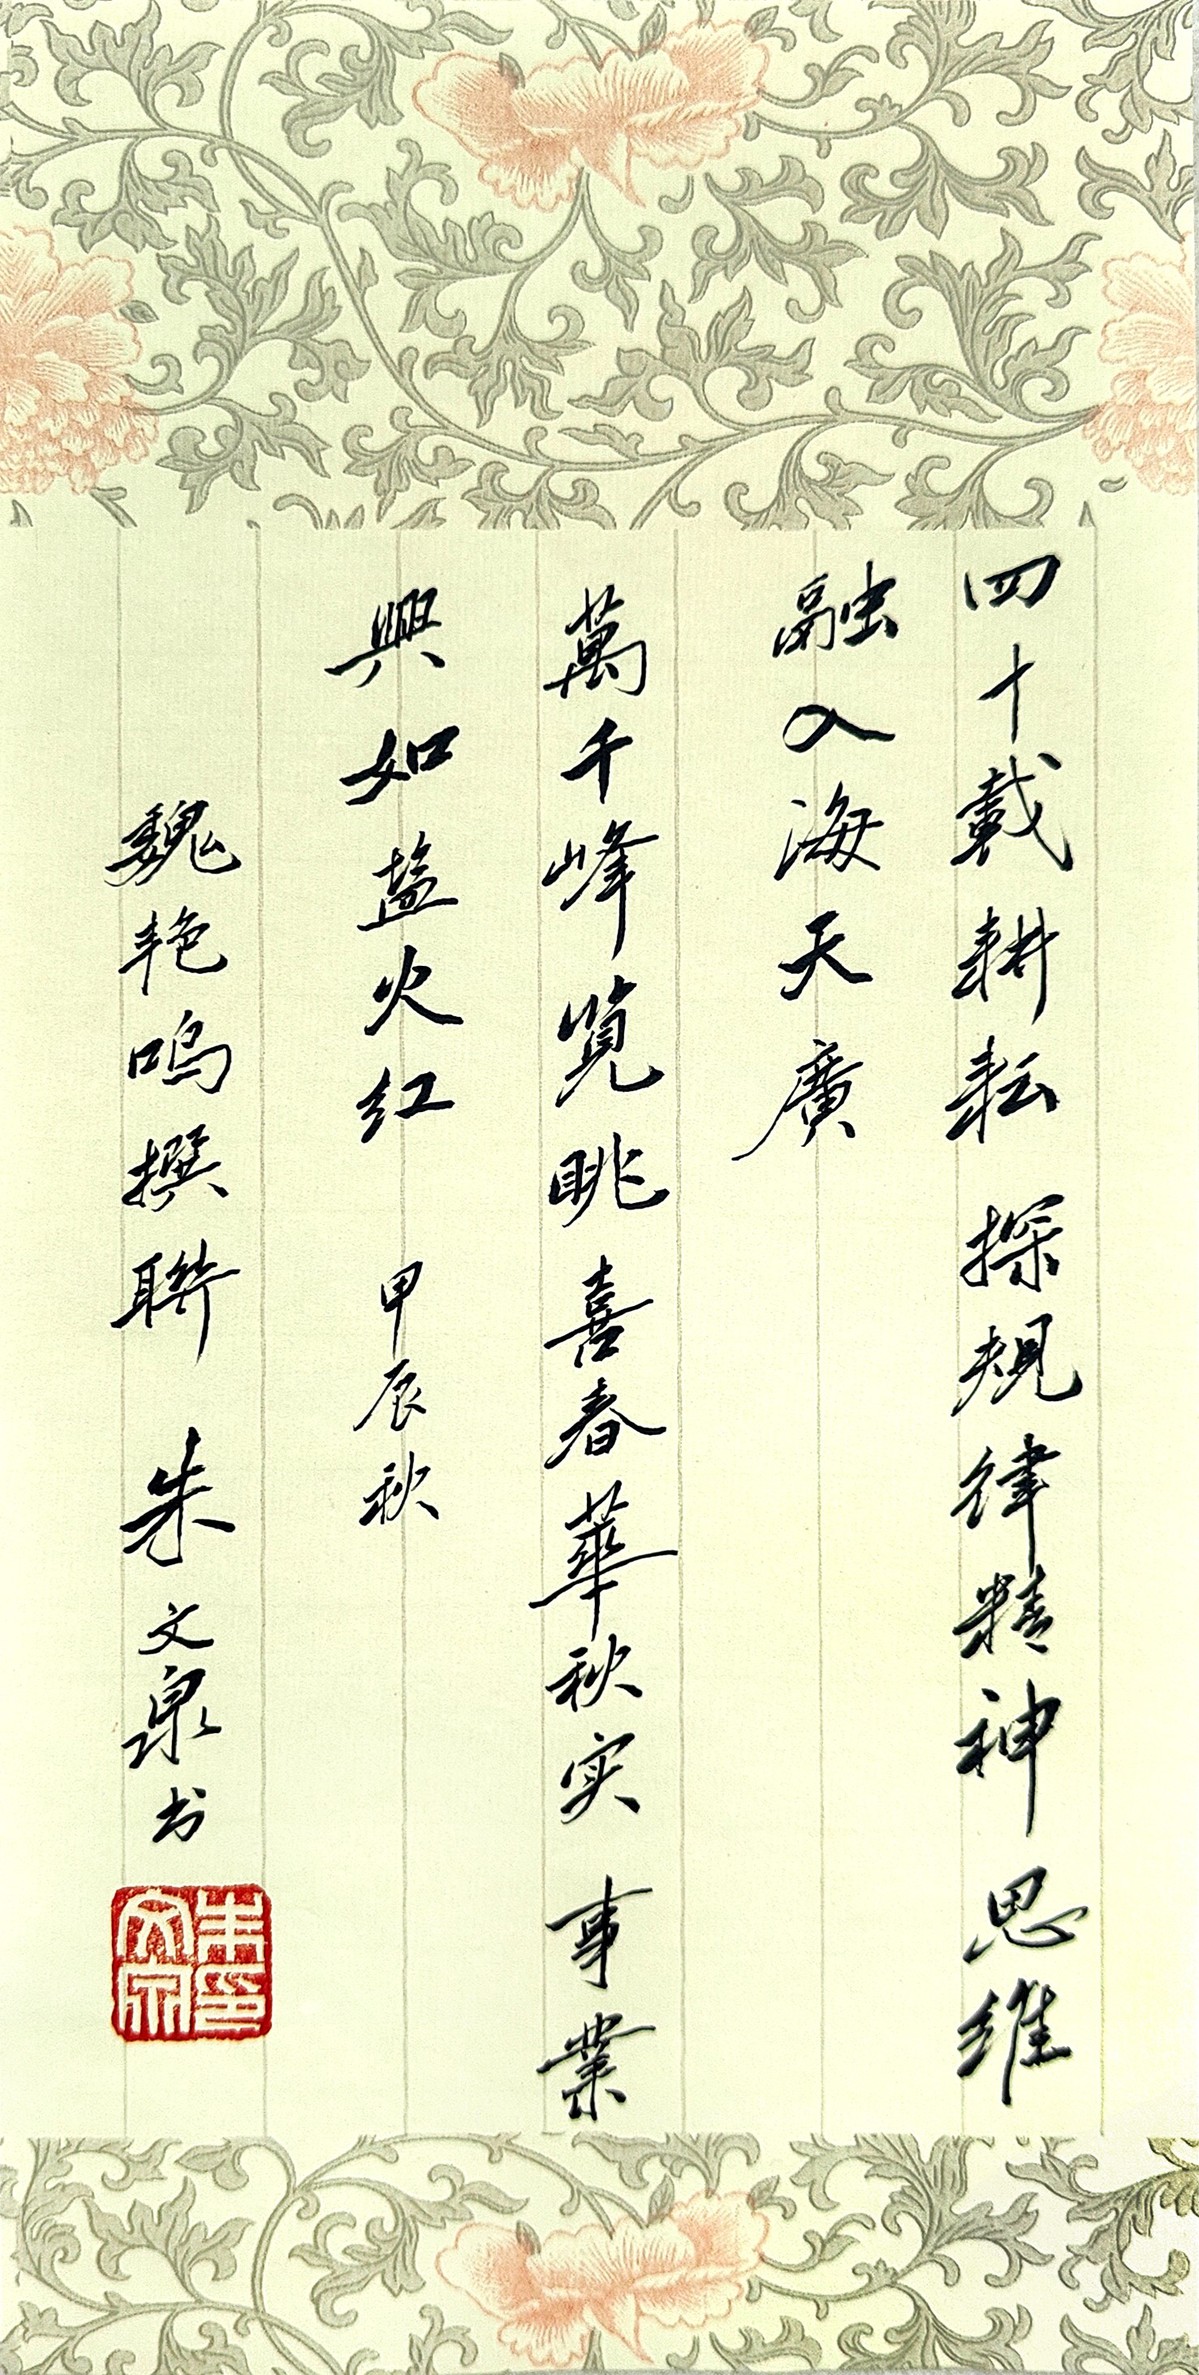 四十載耕耘探規律精神思维
融入海天廣
萬千峰览眺喜春華秋实事業
興如盐火红 甲辰秋
魏艳鸣撰聨 朱文泉书
朱文泉印